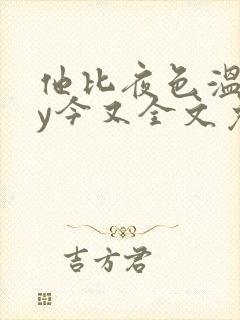 他比夜色温
y今又全文免
吉方君